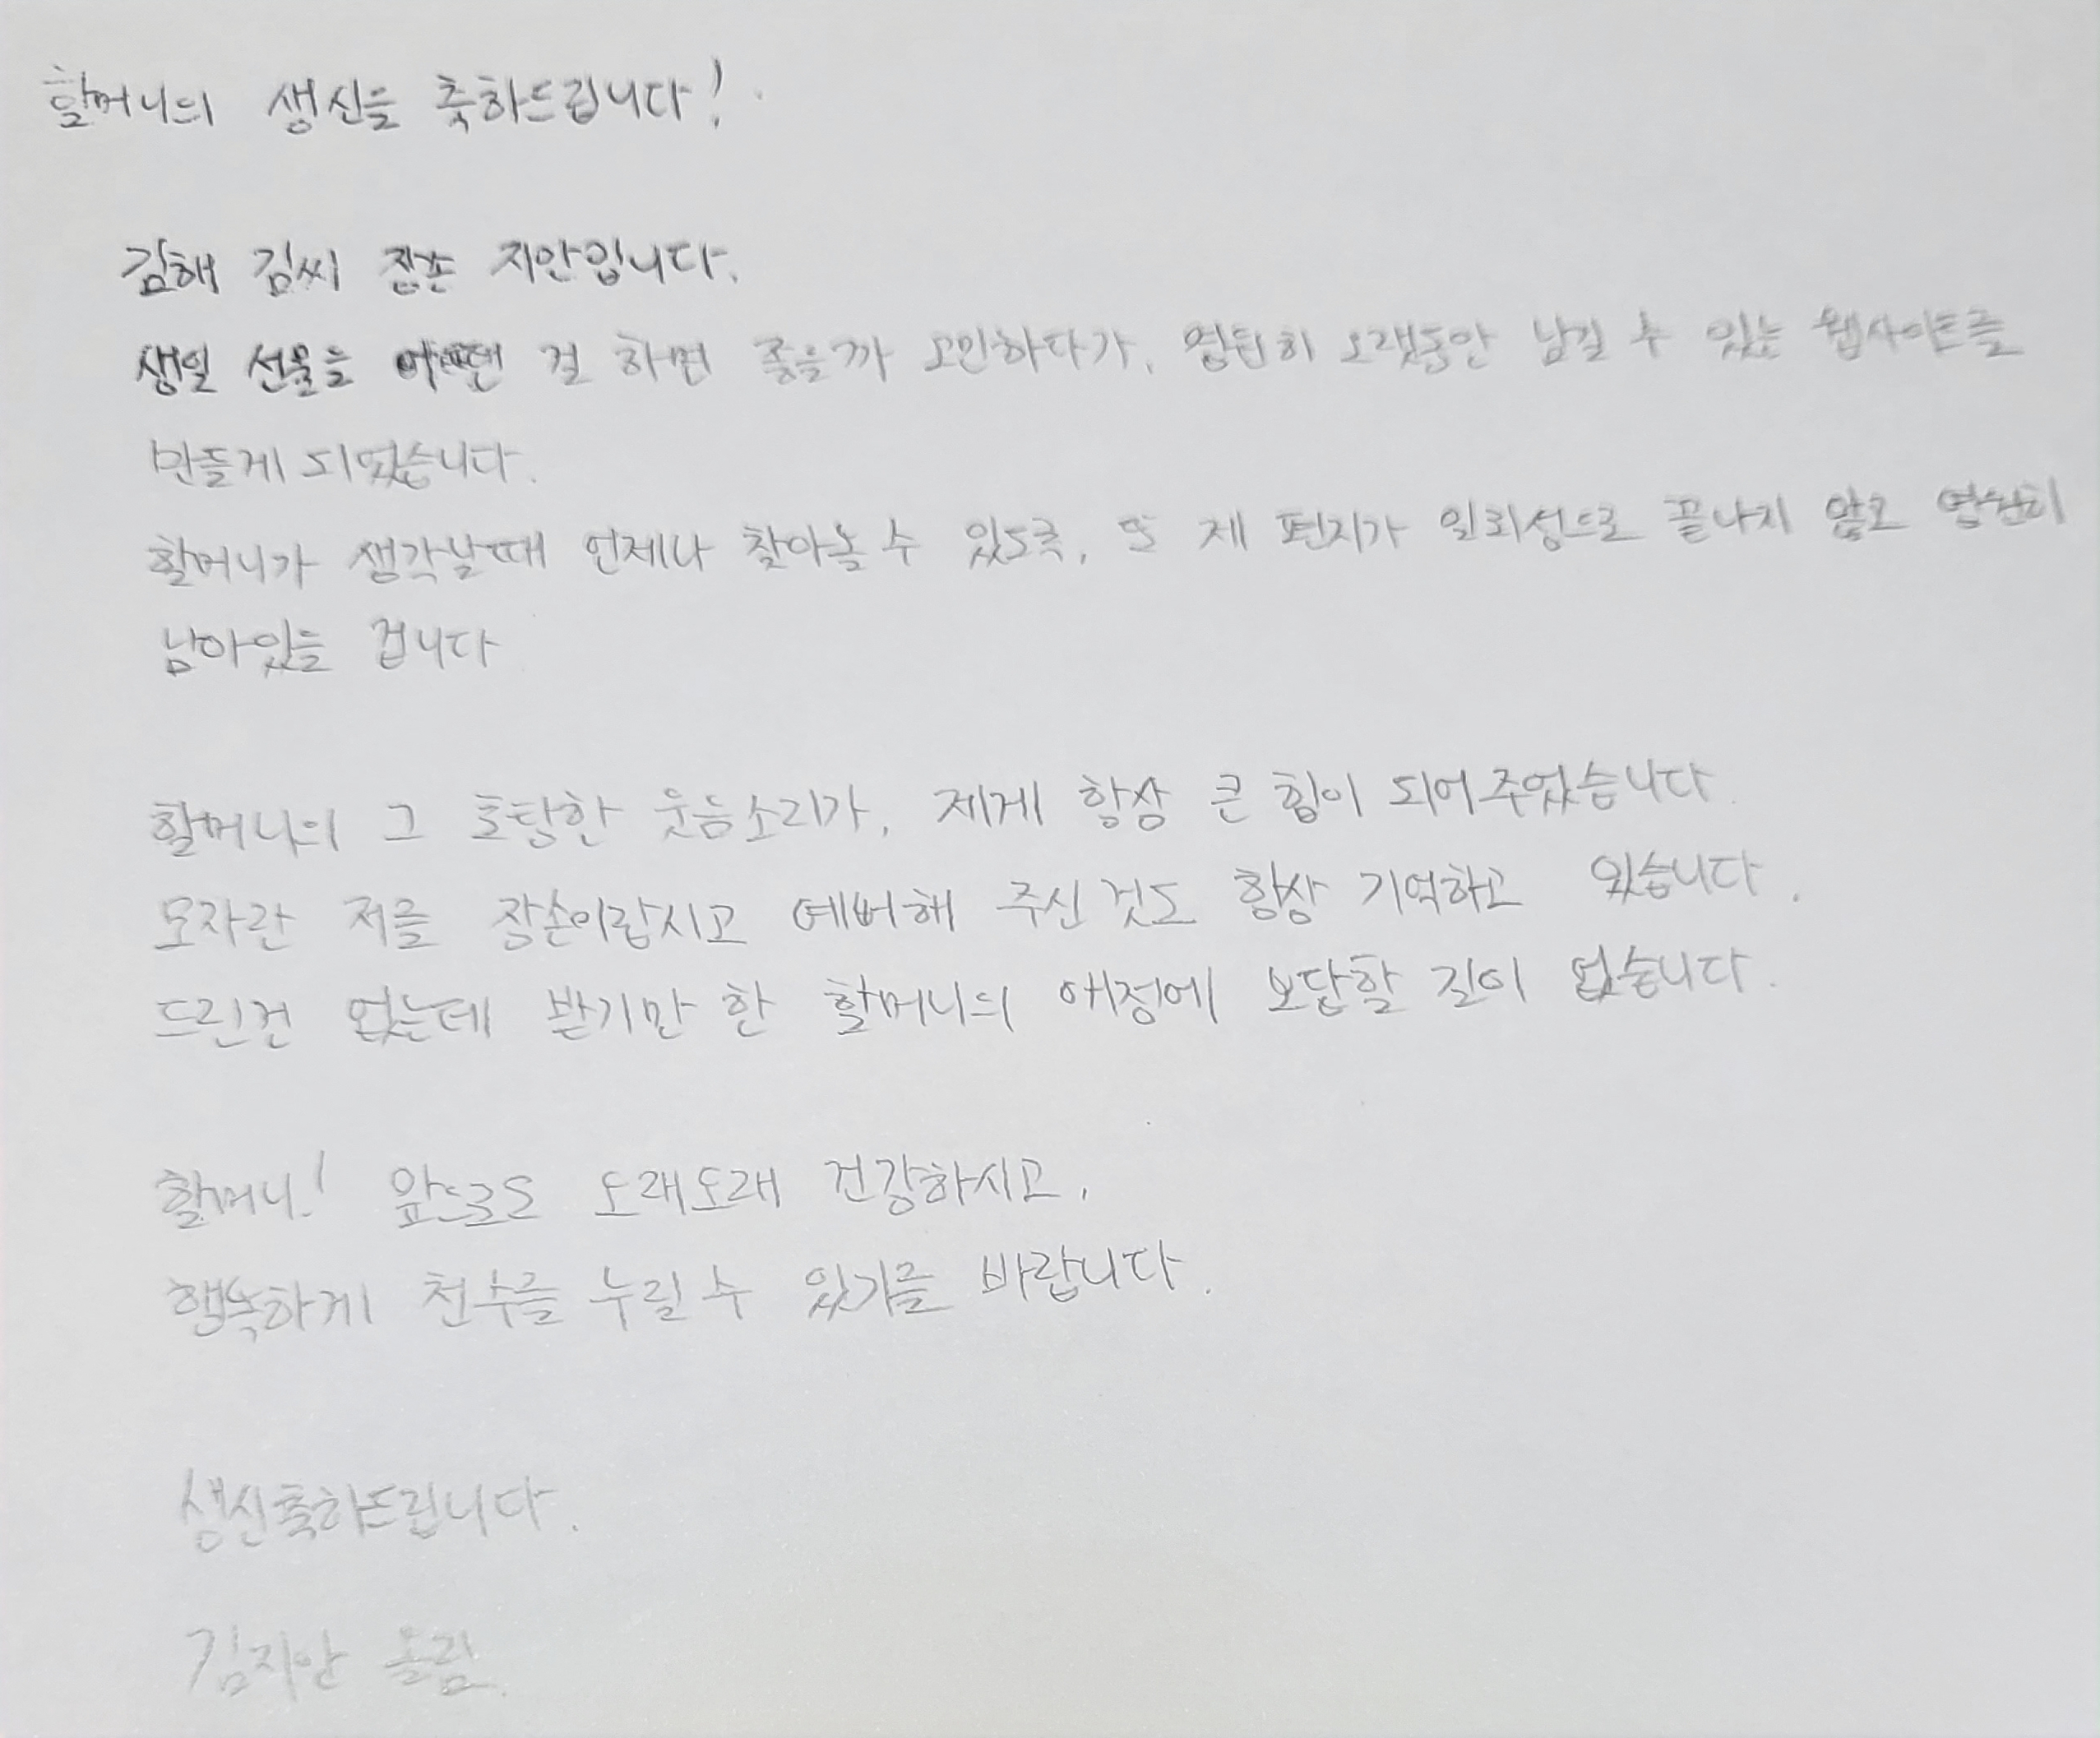 할머니의 생신을 축하드립니다!
김해 김씨 장손 지안입니다.
생일 선물을 어떤 걸 하면 좋을까 고민하다가, 영원히 오랫동안 남길 수 있는 웹사이트를
만들게 되었습니다.
할머니가 생각날때 언제나 찾아올 수 있도록, 또 제 편지가 일회성으로 끝나지 않고 영원히
남아있을 겁니다
할머니의 그 호탕한 웃음소리가, 제게 항상 큰 힘이 되어주었습니다.
모자란 저를 장손이랍시고 예뻐해 주신 것도 항상 기억하고 있습니다.
드린건 없는데 받기만 한 할머니의 애정에 보답할 길이 없습니다.
할머니! 앞으로도 오래오래 건강하시고,
행복하게 천수를 누릴 수 있기를 바랍니다.
생신축하드립니다.
김지안 올림.